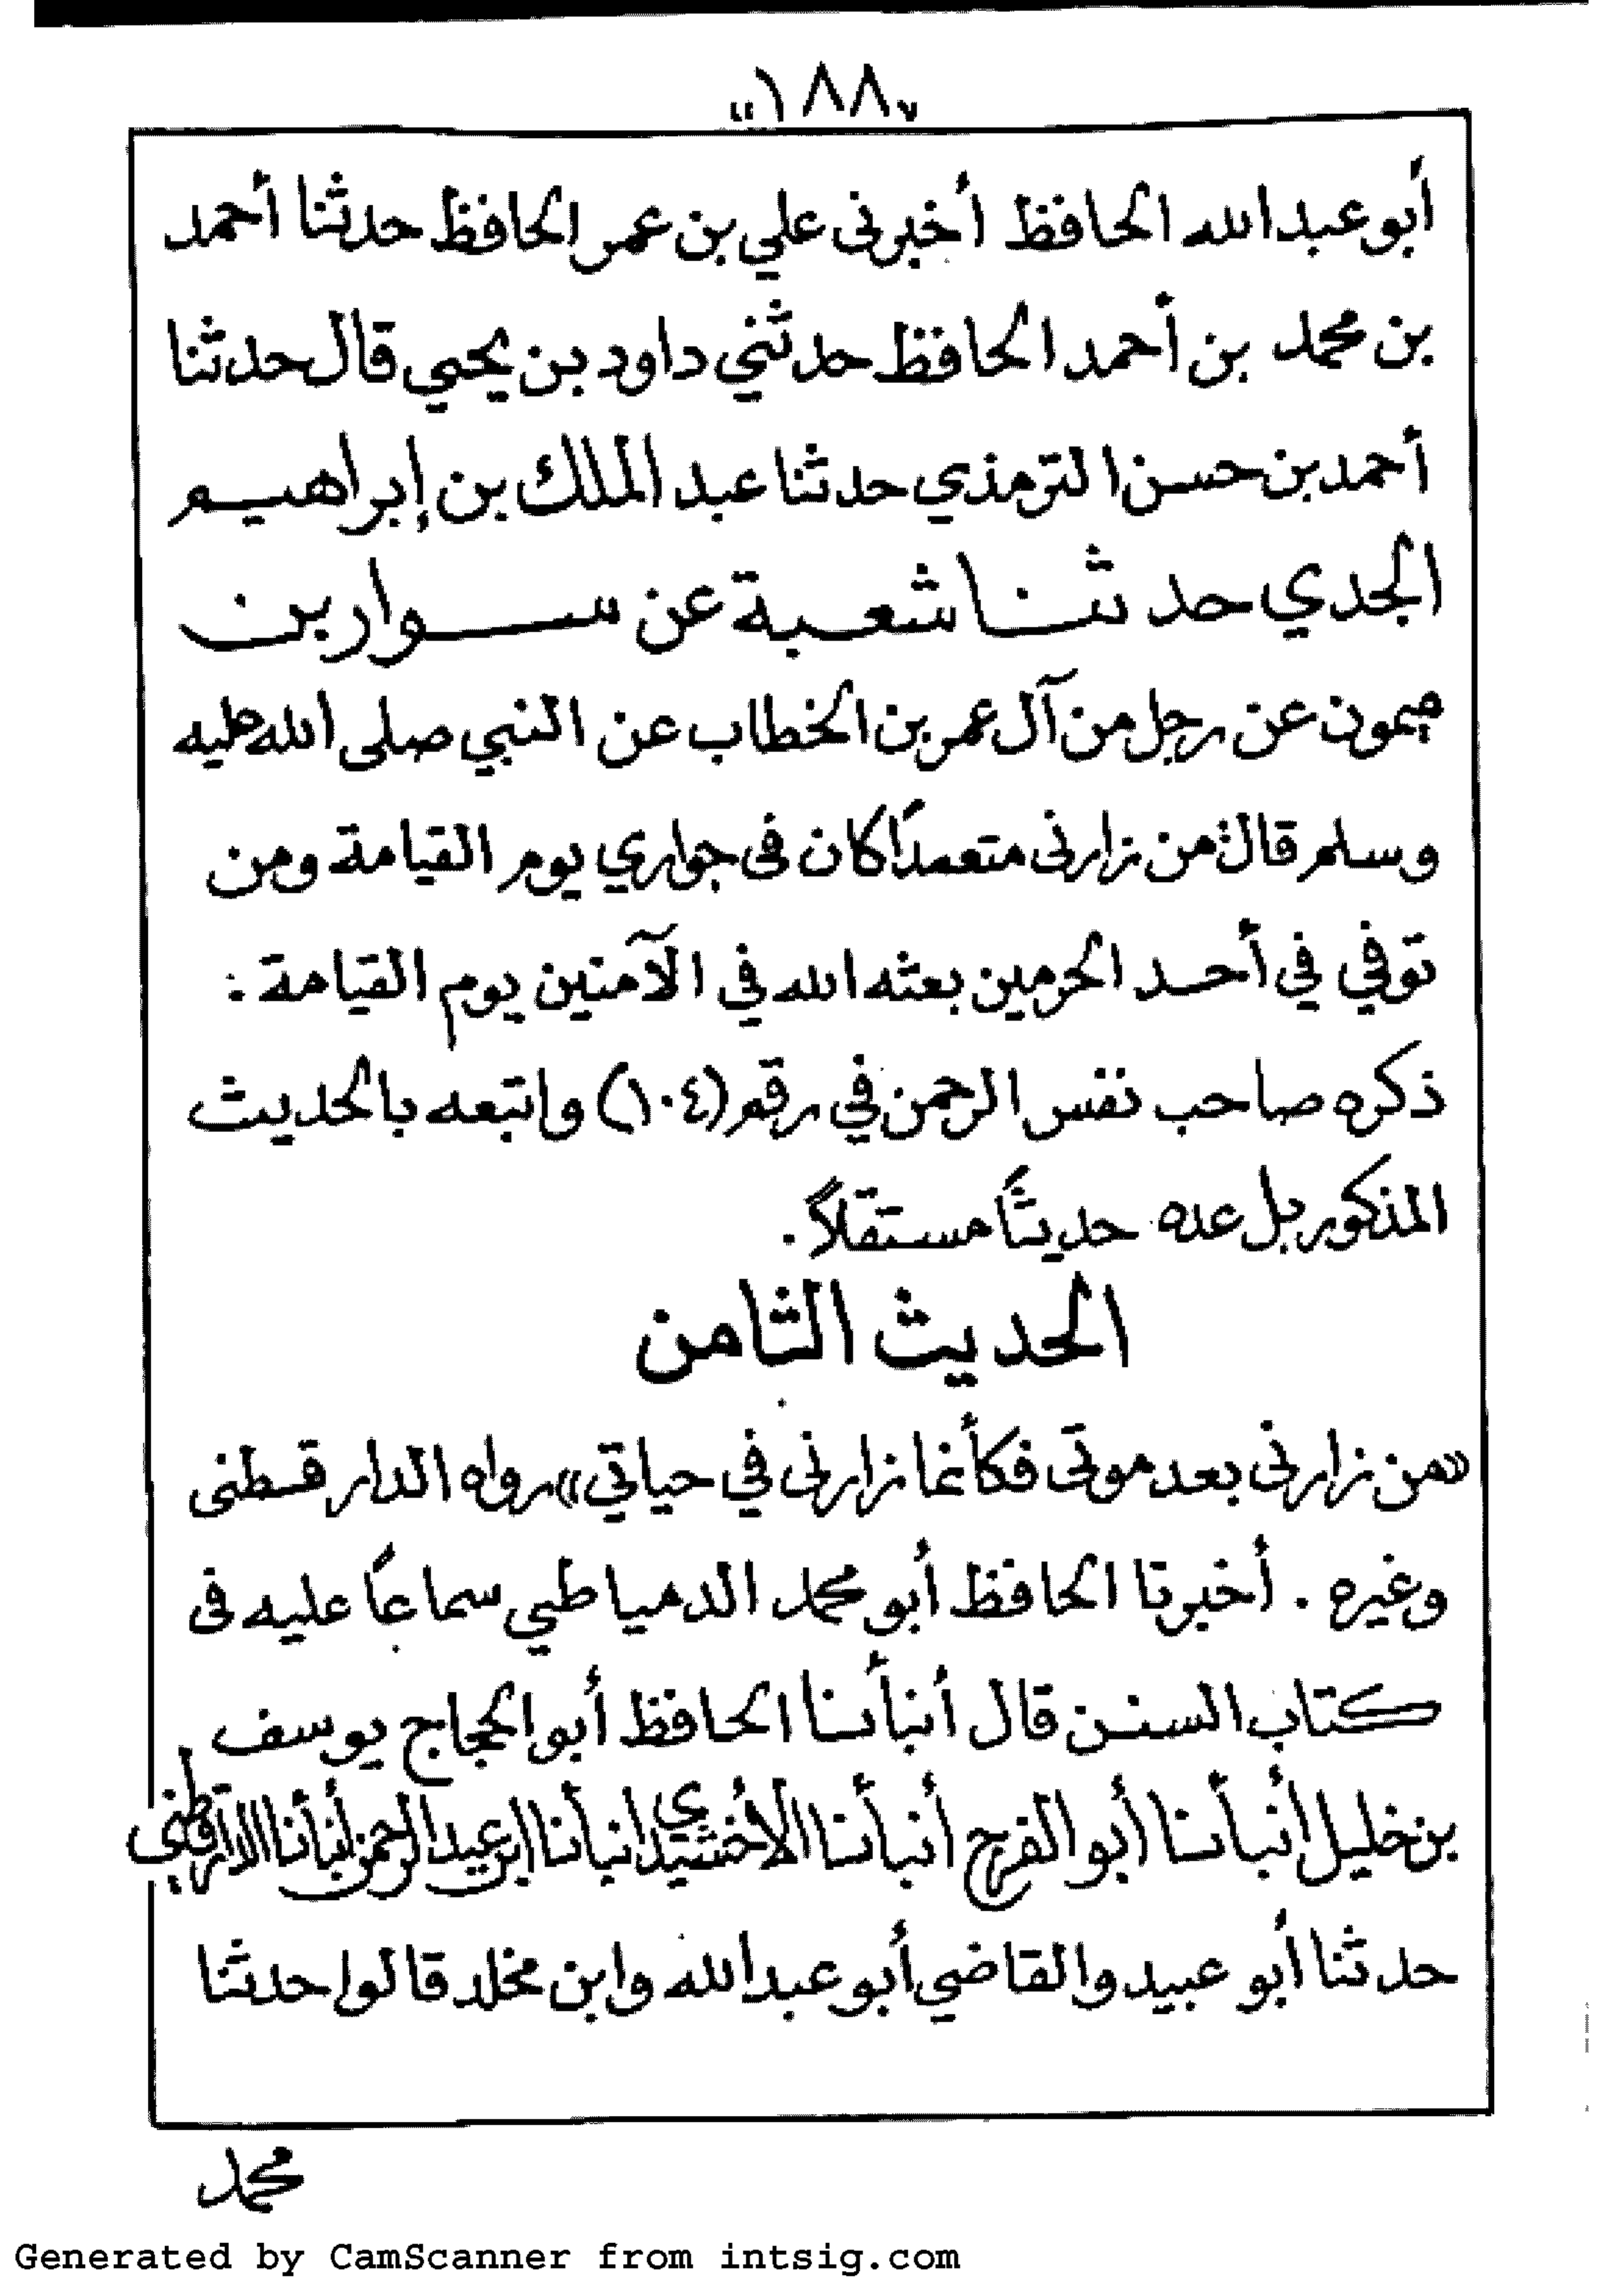 "١٨٨"
أبو عبد الله الحافظ أخبرنى علي بن عمر الحافظ حدثنا أحمد
بن محمد بن أحمد الحافظ حدثني داود بن يحيي قال حدثنا
أحمد بن حسن الترمذي حدثنا عبد الملك بن إبراهيم
الجدي حدثنا شعبة عن سوار بن
ميمون عن رجل من آل عمر بن الخطاب عن النبي صلى الله عليه
وسلم قال: من زارنى متعمدًا كان فى جواري يوم القيامة ومن
توفي في أحد الحرمين بعثه الله في الآمنين يوم القيامة:
ذكره صاحب نفس الرحمن في رقم (١٠٤) واتبعه بالحديث
المذكور بل عده حديثًا مستقلاً.
الحديث الثامن
«من زارنى بعد موتى فكأنما زارنى في حياتي» رواه الدار قسطنى
وغيره. أخبرنا الحافظ أبو محمد الدمياطي سماعًا عليه فى
كتاب السنن قال أنبأنا الحافظ أبو الحجاج يوسف
بن خليل أنبأنا أبو الفرج أنبأنا الأخشيدي انبأنا ابن عبد الرحمن أنبأنا الدارقطني
حدثنا أبو عبيد والقاضي أبو عبد الله وابن مخلد قالوا حدثنا
محمد
Generated by CamScanner from intsig.com